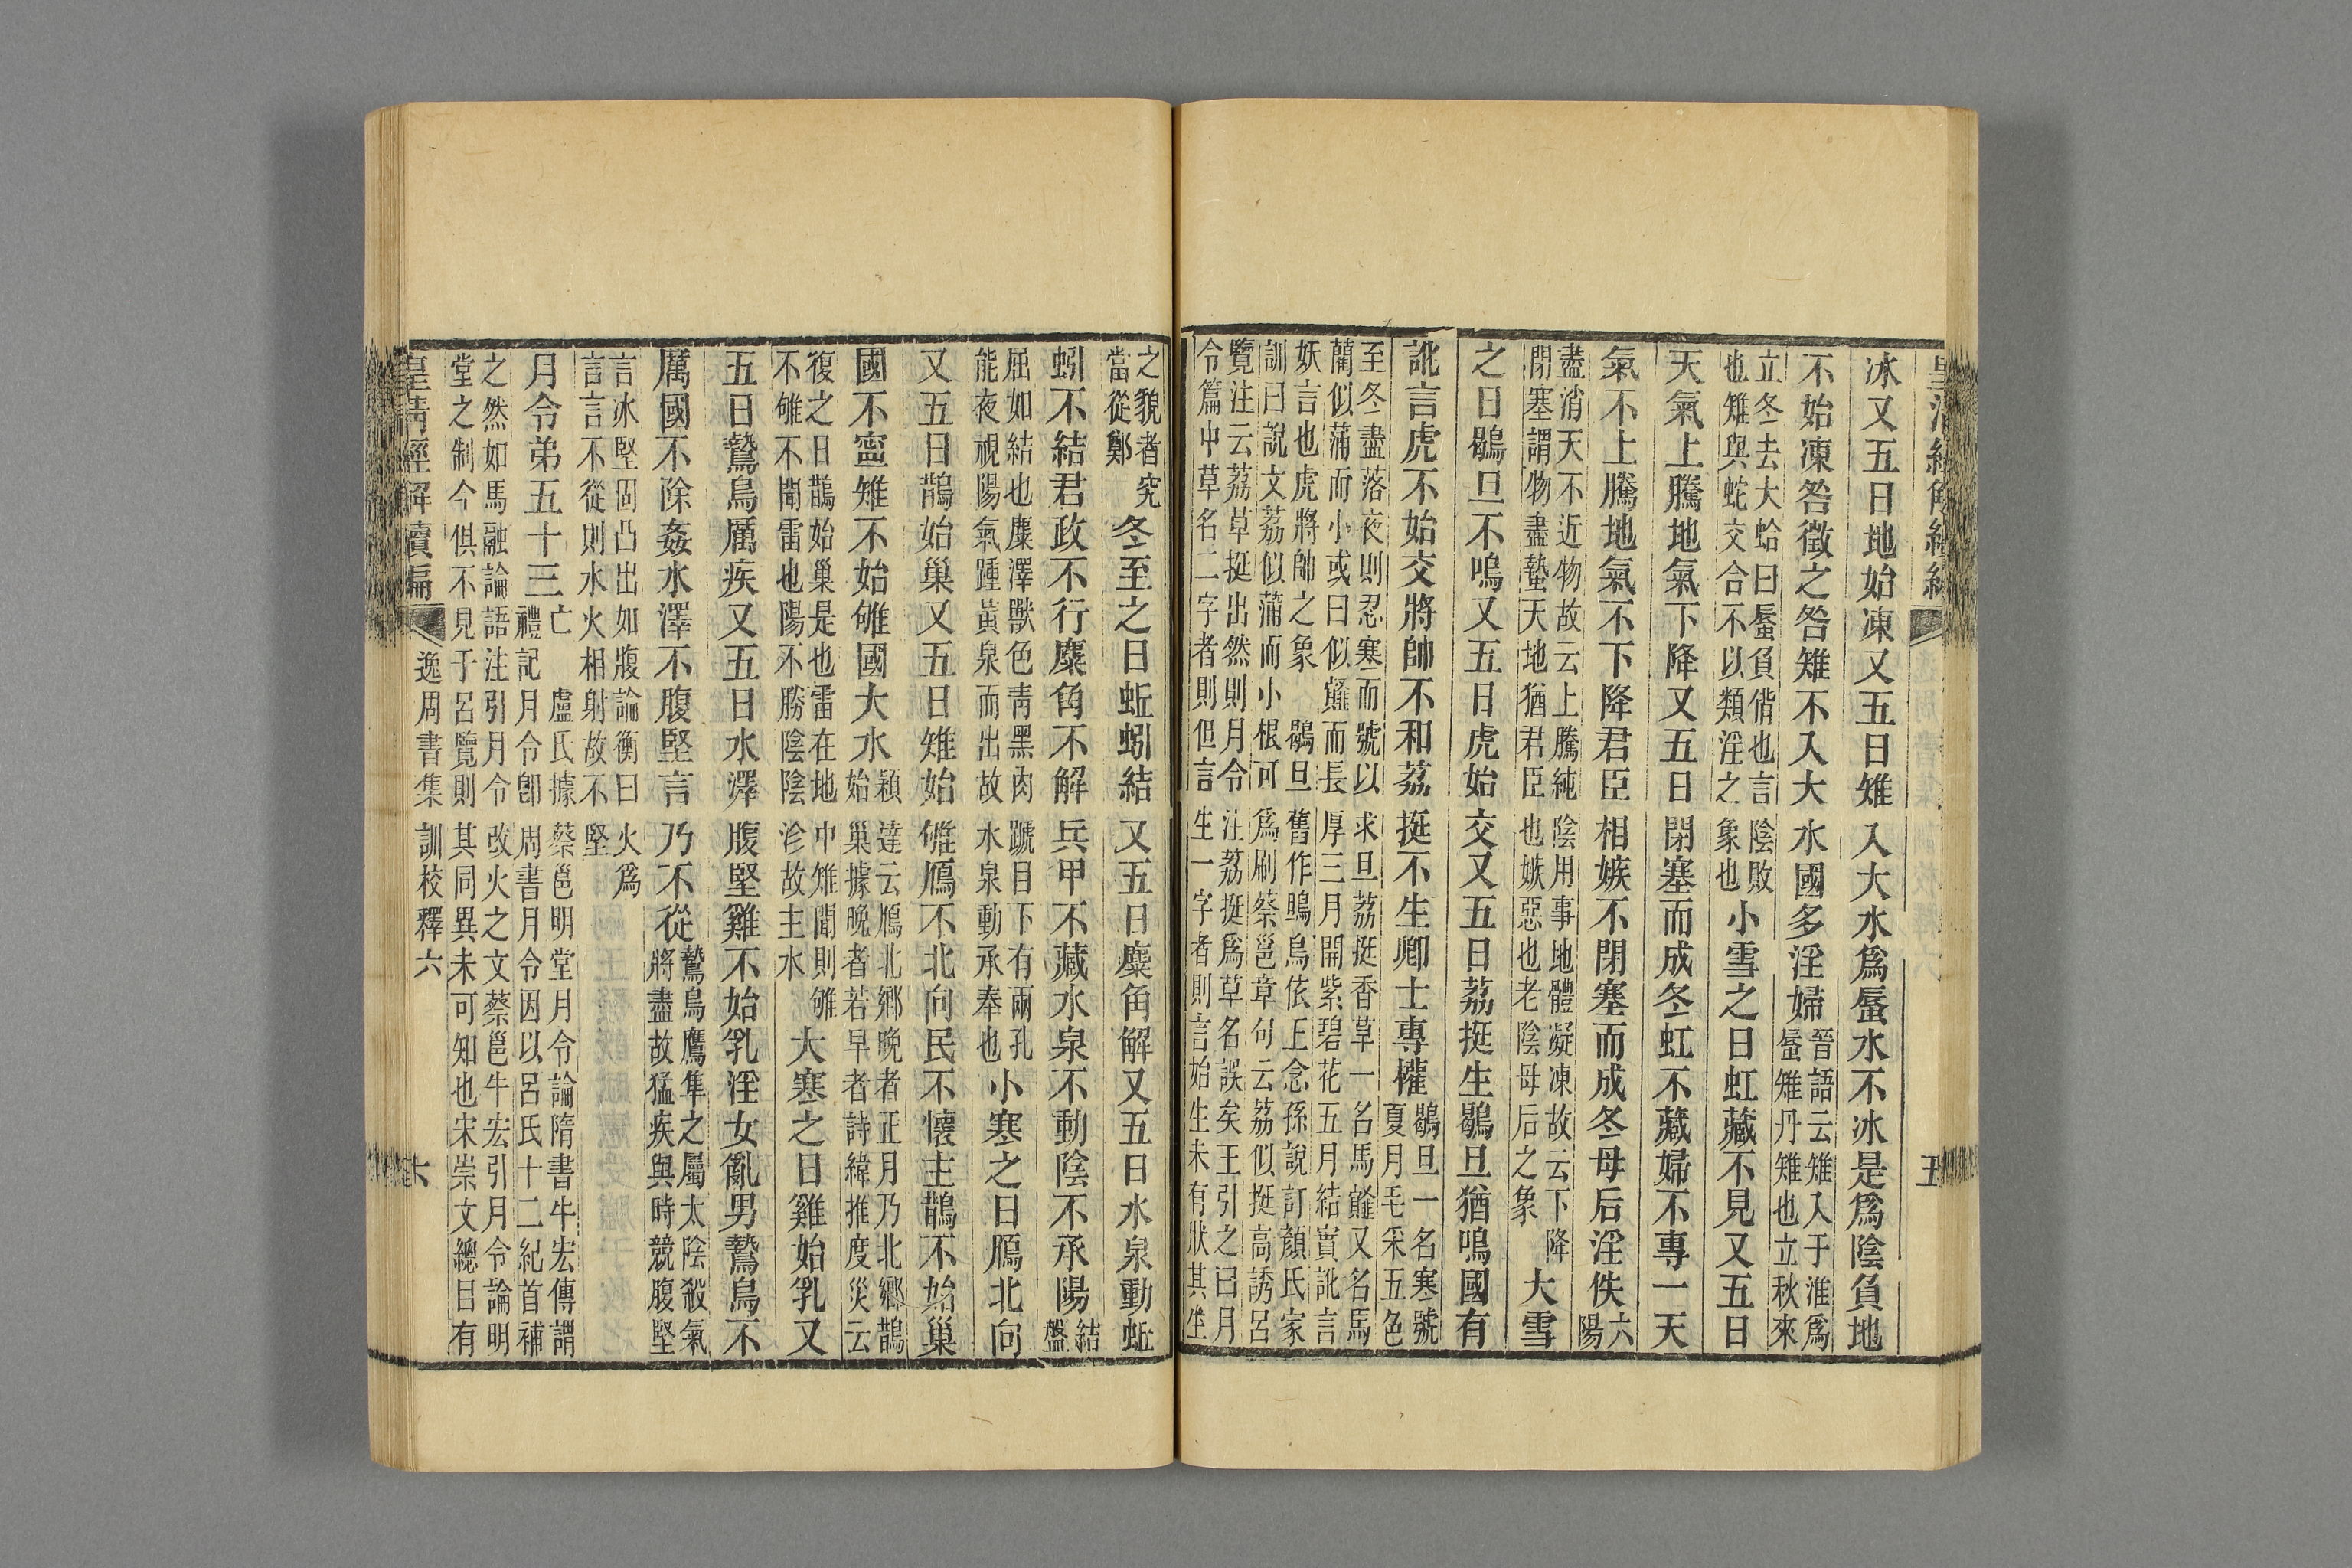 皇清經解續編
五
冰又五日地始凍又五日雉入大水爲蜃水不冰是爲陰負地
不始凍咎徵之咎雉不入大水國多淫婦
晉語云雉入于淮爲
蜃雉丹雉也立秋來
立冬去大蛤曰蜃負偝也言陰敗
也雉與蛇交合不以類淫之象也
小雪之日虹藏不見又五日
天氣上騰地氣下降又五日閉塞而成冬虹不藏婦不專一天
氣不上騰地氣不下降君臣相嫉不閉塞而成冬母后淫佚
六
陽
盡消天不近物故云上騰純陰用事地體凝凍故云下降
閉塞謂物盡蟄天地猶君臣也嫉惡也老陰母后之象
大雪
之日鶡旦不鳴又五日虎始交又五日荔挺生鶡旦猶鳴國有
訛言虎不始交將帥不和荔挺不生卿士專權
鶡旦一名寒號
夏月毛采五色
至冬盡落夜則忍寒而號以求旦荔挺香草一名馬䪥又名馬
藺似蒲而小或曰似䪥而長厚三月開紫碧花五月結實訛言
妖言也虎將帥之象 鶡旦舊作鴠鳥依王念孫說訂顏氏家
訓曰說文荔似蒲而小根可爲刷蔡邕章句云荔似挺高誘呂
覽注云荔草挺出然則月令注荔挺爲草名誤矣王引之曰月
令篇中草名二字者則但言生一字者則言始生未有狀其生
之貌者究
當從鄭
冬至之日蚯蚓結又五日麋角解又五日水泉動蚯
蚓不結君政不行麋角不解兵甲不藏水泉不動陰不承陽
結
盤
屈如結也麋澤獸色青黑肉蹏目下有兩孔
能夜視陽氣踵黃泉而出故水泉動承奉也
小寒之日鴈北向
又五日鵲始巢又五日雉始雊鴈不北向民不懷主鵲不始巢
國不寍雉不始雊國大水
穎達云鴈北鄉晚者正月乃北鄉鵲
始巢據晚者若早者詩緯推度災云
復之日鵲始巢是也雷在地中雉聞則雊
不雊不聞雷也陽不勝陰陰沴故主水
大寒之日雞始乳又
五日鷙鳥厲疾又五日水澤腹堅雞不始乳淫女亂男鷙鳥不
厲國不除姦水澤不腹堅言乃不從
鷙鳥鷹隼之屬太陰殺氣
將盡故猛疾與時競腹堅
言冰堅固凸出如腹論衡曰火爲
言言不從則水火相射故不堅
月令弟五十三
亡 盧氏據蔡邕明堂月令論隋書牛宏傳謂
禮記月令卽周書月令因以呂氏十二紀首補
之然如馬融論語注引月令改火之文蔡邕牛宏引月令論明
堂之制今俱不見于呂覽則其同異未可知也宋崇文總目有
皇清經解續編
逸周書集訓校釋六
六